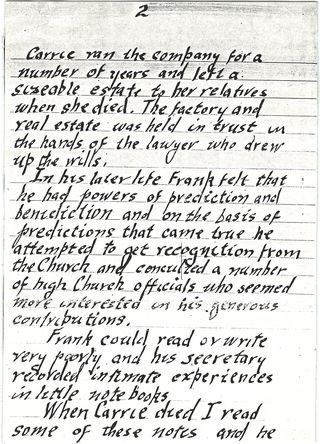 2
Carrie ran the company for a
number of years and left a
sizeable estate to her relatives
when she died. The factory and
real estate was held in trust in
the hands of the lawyer who drew
up the wills.
In his later life Frank felt that
he had powers of prediction and
benidiction and on the basis of
predictions that came true he
attempted to get recognition from
the Church and consulted a number
of high Church officials who seemed
more interested in his generous
contributions.
Frank could read or write
very poorly and his secretary
recorded intimate experiences
in little note books
When Carrie died I read
some of these notes and he